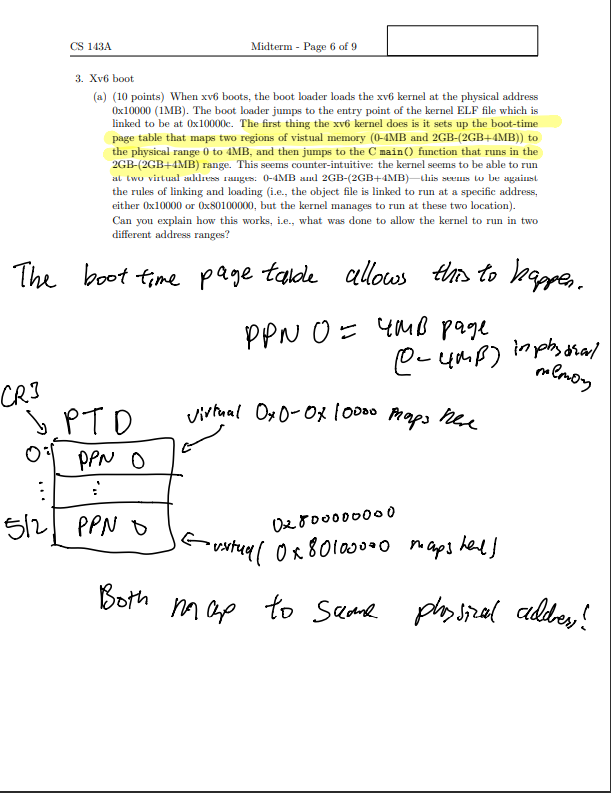 CS 143A
Midterm - Page 6 of 9
3. Xv6 boot
(a) (10 points) When xv6 boots, the boot loader loads the xv6 kernel at the physical address
0x10000 (1MB). The boot loader jumps to the entry point of the kernel ELF file which is
linked to be at 0x10000c. The first thing the xv6 kernel does is it sets up the boot-time
page table that maps two regions of vistual memory (0-4MB and 2GB-(2GB+4MB)) to
the physical range 0 to 4MB, and then jumps to the C main() function that runs in the
2GB-(2GB+4MB) range. This seems counter-intuitive: the kernel seems to be able to run
at two virtual address ranges: 0-4MB and 2GB-(2GB+4MB)—this seems to be against
the rules of linking and loading (i.e., the object file is linked to run at a specific address,
either 0x10000 or 0x80100000, but the kernel manages to run at these two location).
Can you explain how this works, i.e., what was done to allow the kernel to run in two
different address ranges?
The boot time page table allows this to happen.
PPN 0 = 4MB page
(0-4MB) in physical
memory
CR3
PTD
virtual 0x0-0x10000 maps here
0: PPN 0
⋮ ⋮
512 PPN 0
0x800000000
virtual 0x80100000 maps here
Both map to same physical address!